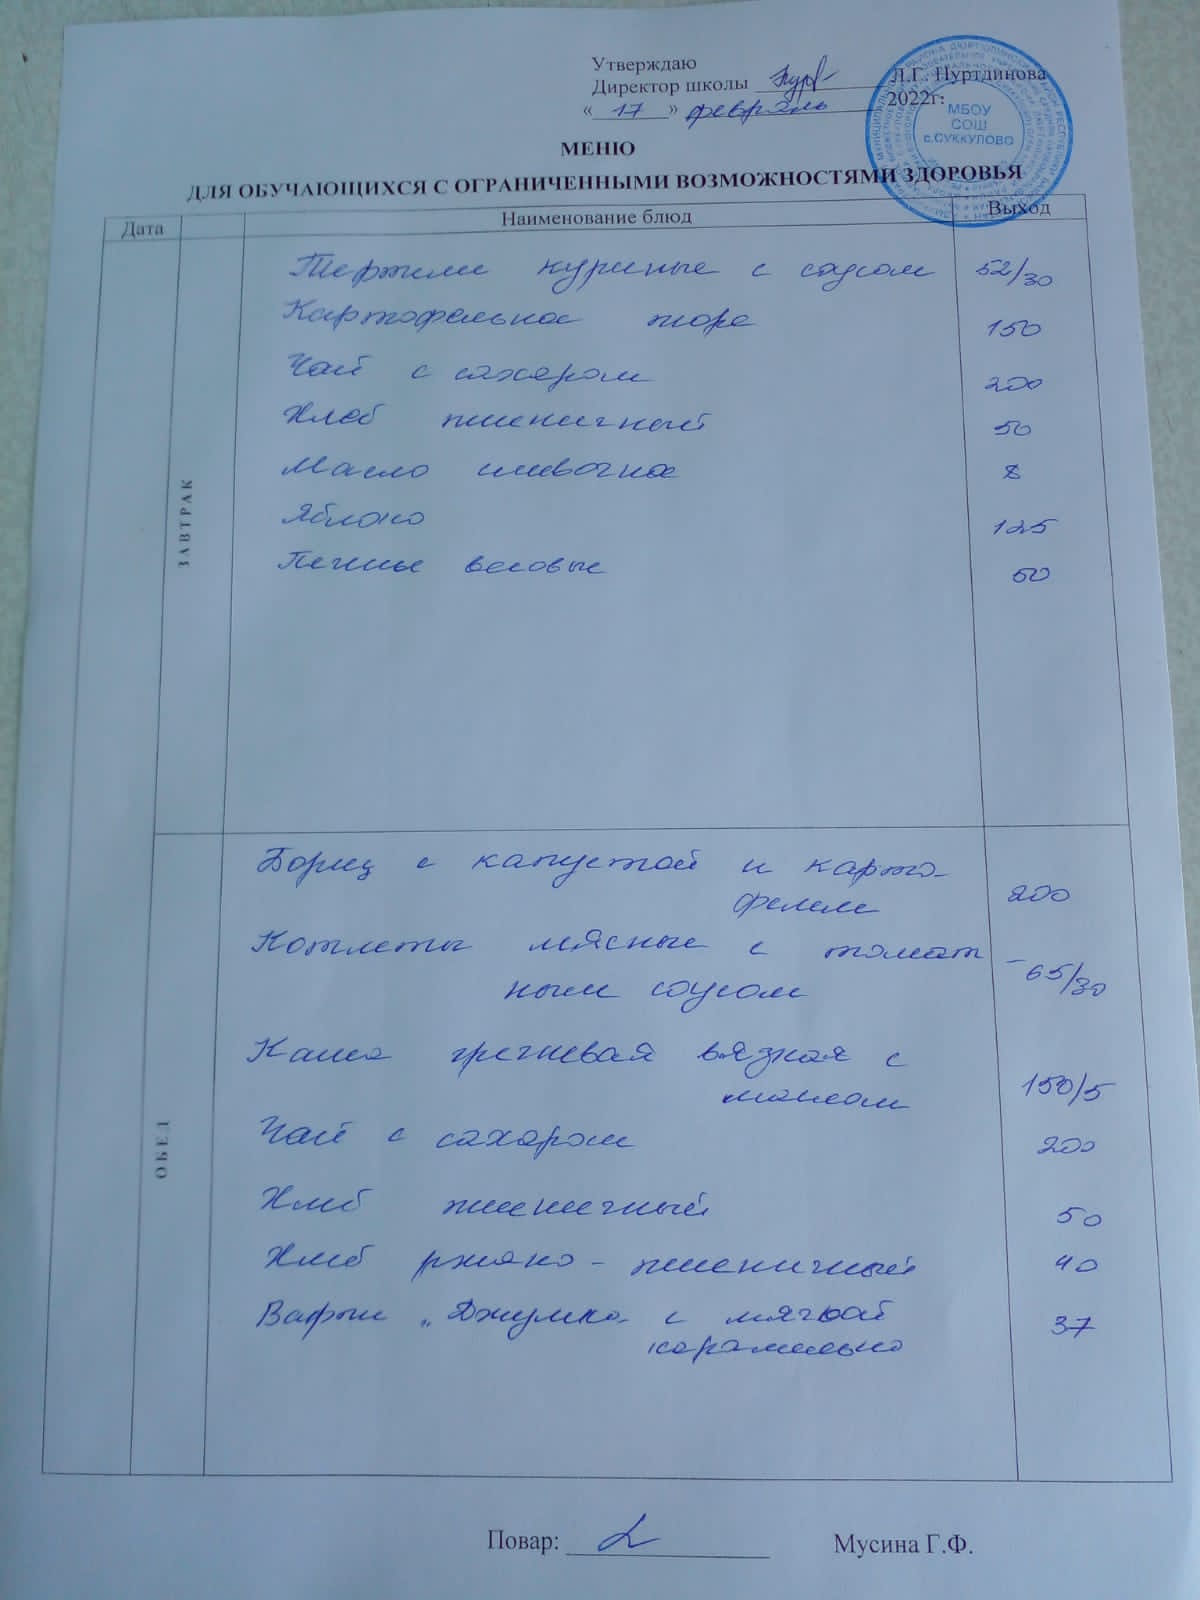 Утверждаю
Директор школы Л.Г. Нуртдинова
« 17 » февраль 2022г.
МБОУ
СОШ
с.СУККУЛОВО
МЕНЮ
ДЛЯ ОБУЧАЮЩИХСЯ С ОГРАНИЧЕННЫМИ ВОЗМОЖНОСТЯМИ ЗДОРОВЬЯ
Дата Наименование блюд Выход
ЗАВТРАК
Тефтели куриные с соусом 52/30
Картофельное пюре 150
Чай с сахаром 200
Хлеб пшеничный 50
Масло сливочное 8
Яблоко 125
Печенье весовые 50
ОБЕД
Борщ с капустой и карто-
фелем 200
Котлеты мясные с томат
ным соусом 65/30
Каша гречневая вязкая с
маслом 150/5
Чай с сахаром 200
Хлеб пшеничный 50
Хлеб ржано-пшеничный 40
Вафли „Джумка" с мягкой
карамелью 37
Повар: Мусина Г.Ф.